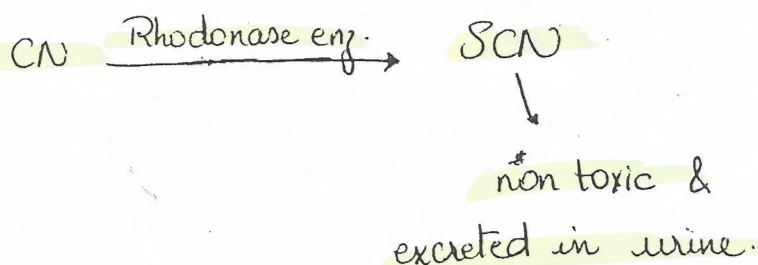 Rhodonase enz.
CN → SCN
non toxic &
excreted in urine.